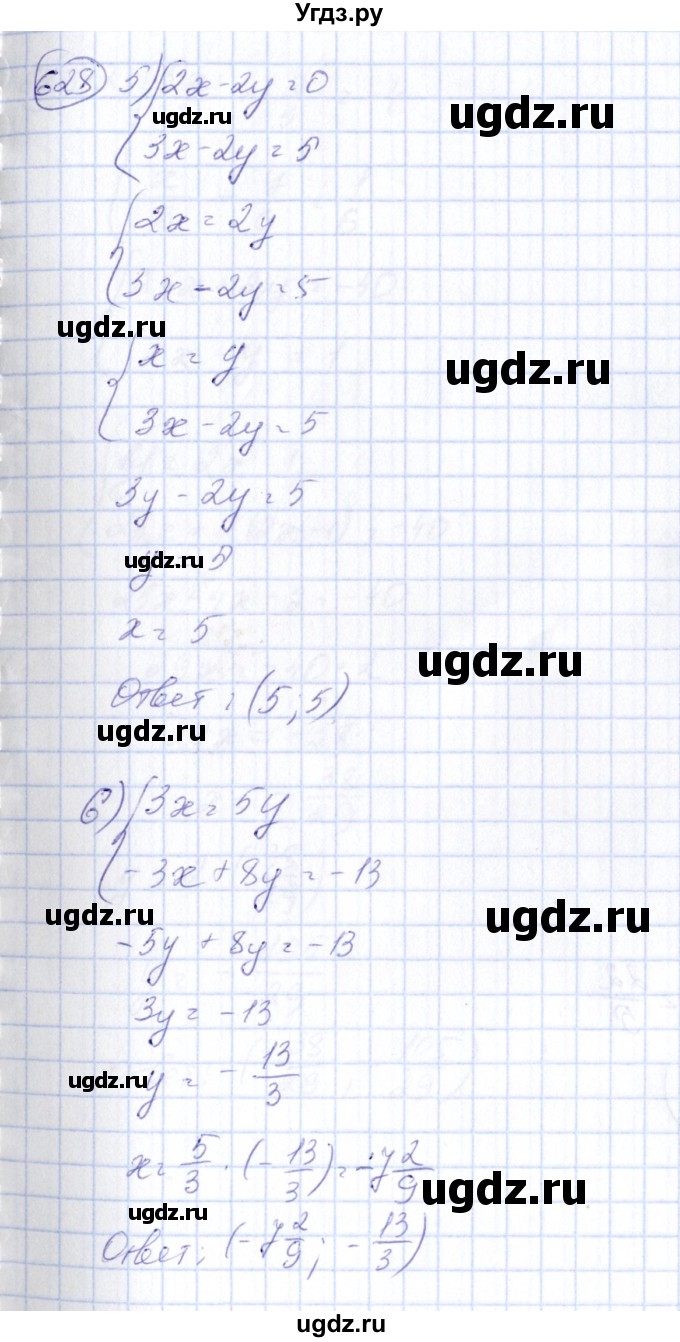 Угдз.ру
628 5) { 2x - 2y = 0
ugdz.ru
ugdz.ru
3x - 2y = 5
{ 2x = 2y
3x - 2y = 5
ugdz.ru
{ x = y
ugdz.ru
3x - 2y = 5
3y - 2y = 5
ugdz.ru
y = 5
x = 5
ugdz.ru
Ответ: (5; 5)
ugdz.ru
6) { 3x = 5y
-3x + 8y = -13
ugdz.ru
ugdz.ru
-5y + 8y = -13
3y = -13
ugdz.ru
y = -13/3
x = 5/3 · (-13/3) = -7 2/9
ugdz.ru
ugdz.ru
Ответ: (-7 2/9; -13/3)
ugdz.ru